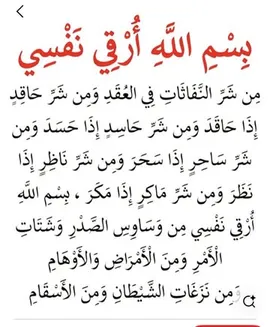 بِسْمِ اللَّهِ أُرْقِي نَفْسِي
مِن شَرِّ النَّفَاثَاتِ فِي العُقَدِ وَمِن شَرِّ حَاقِدٍ
إِذَا حَاقَدَ وَمِن شَرِّ حَاسِدٍ إِذَا حَسَدَ وَمِن
شَرِّ سَاحِرٍ إِذَا سَحَرَ وَمِن شَرِّ نَاظِرٍ إِذَا
نَظَرَ وَمِن شَرِّ مَاكِرٍ إِذَا مَكَرَ ، بِسْمِ اللَّهِ
أُرْقِي نَفْسِي مِن وَسَاوِسِ الصَّدْرِ وَشَتَاتِ
الْأَمْرِ وَمِنَ الْأَمْرَاضِ وَالْأَوْهَامِ
وَمِن نَزَغَاتِ الشَّيْطَانِ وَمِنَ الأَسْقَامِ